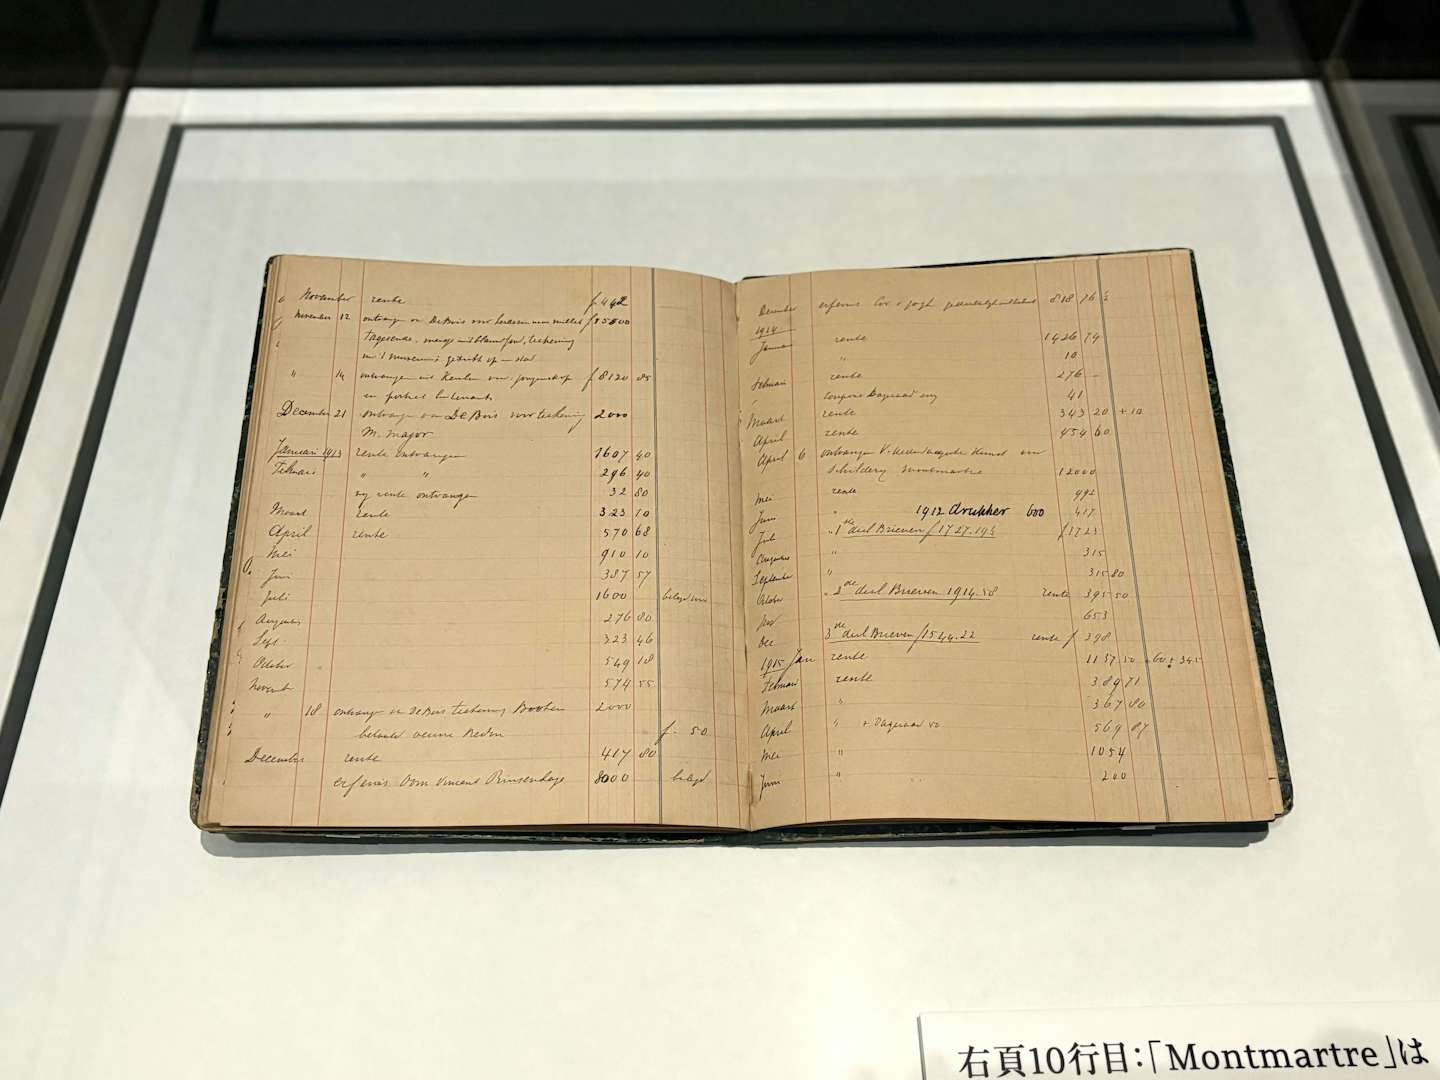 November rente f 442
November 12 ontvangen v. De Bois voor
tekening
" 14 ontvangen f 8120 85
en portret
December 21 ontvangen van De Bois voor tekening 2000
M. Major
Januari 1913 rente ontvangen 1607 40
Februari " " 296 40
rente ontvangen 32 80
Maart rente 323 10
April rente 570 68
Mei 910 10
Juni 387 57
Juli 1600 belegd
Augustus 276 80
Sept. 323 46
October 549 18
Novemb 574 55
" 18 ontvangen v De Bois tekening 2000
betaald f. 50
December rente 417 80
erfenis Oom Vincent Prinsenhage 8000 belegd
December erfenis Cor v gogh 818 76
1914
Januari rente 1426 74
" 10
Februari rente 276 –
coupons Dageraad 41
Maart rente 343 20 + 10
April rente 454 60
April 6 ontvangen kunst voor
Schilderij Montmartre 12000
Mei rente 992
Juni " 1912 drukker 600 417
Juli 1ste deel Brieven f 1727.195 f 1723
Augustus " 315
September " 315 80
October 2de deel Brieven 1914.58 rente 395 50
Nov 653
Dec 3de deel Brieven f 1544.22 rente f 398
1915 Jan rente 1137 50
Februari rente 389 71
Maart " 367 80
April " + Dageraad 50 569 87
Mei " 1054
Juni " 200
右頁10行目:「Montmartre」は